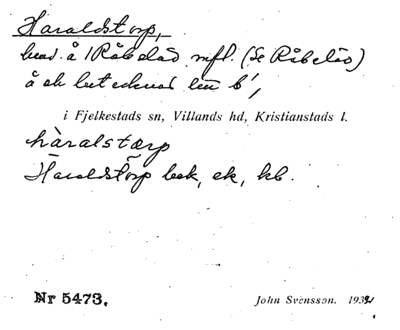 Haraldstorp,
hmd. å 1 Råbelöv mfl. (Se Råbelöv)
å ek betecknad
i Fjelkestads sn, Villands hd, Kristianstads l.
haralstærp
Haraldstorp bok, ek, kb.
Nr 5473. John Svensson. 1932